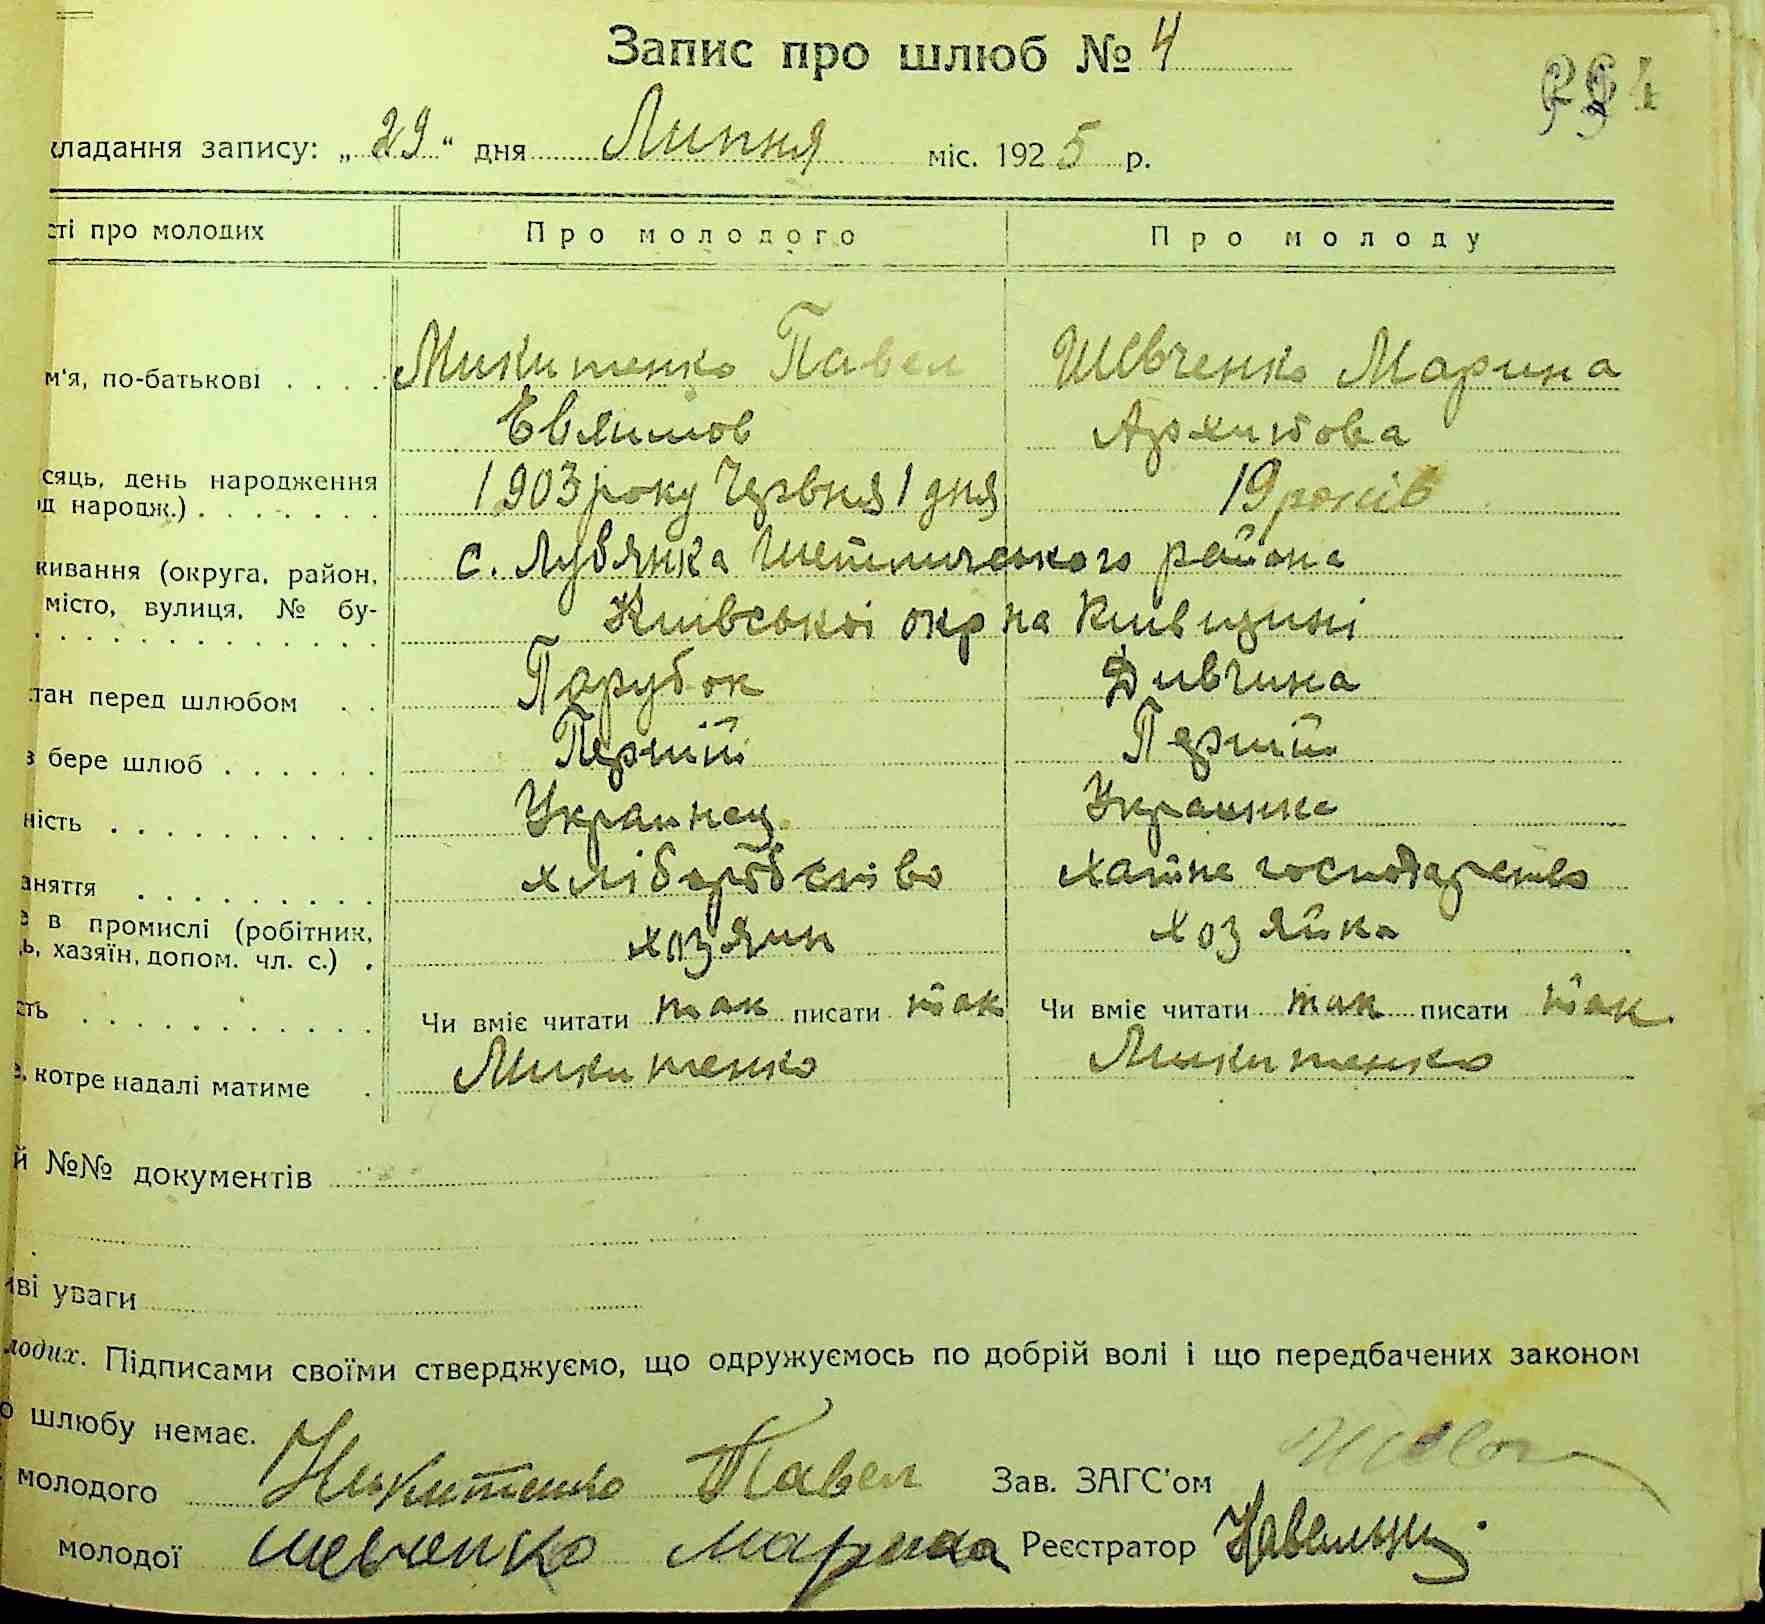 Запис про шлюб № 4
кладання запису: „ 29 “ дня Липня міс. 1925 р.
сті про молодих Про молодого Про молоду
м'я, по-батькові . . . . Микитенко Павел Шевченко Марина
Евлимов Архипова
сяць, день народження 1903 року Червня 1 дня 19 років
од народж.) . . . . . . .
живання (округа, район, с. Лубянка Шепиличського района
місто, вулиця, № бу- Київської окр на Київщині
стан перед шлюбом . . Парубок Дивчина
з бере шлюб . . . . . . Перший Перший
ність . . . . . . . . . . Украинец Украинка
аняття . . . . . . . . . хліборобство хатне господарство
е в промислі (робітник, хозяин хозяйка
ь, хазяїн, допом. чл. с.) .
сть . . . . . . . . . . . Чи вміє читати так писати так Чи вміє читати так писати так
е, котре надалі матиме . Микитенко Микитенко
й №№ документів
иві уваги
лодих. Підписами своїми стверджуємо, що одружуємось по добрій волі і що передбачених законом
о шлюбу немає.
молодого Никитенко Павел Зав. ЗАГС'ом
молодої шевченко марина Реєстратор